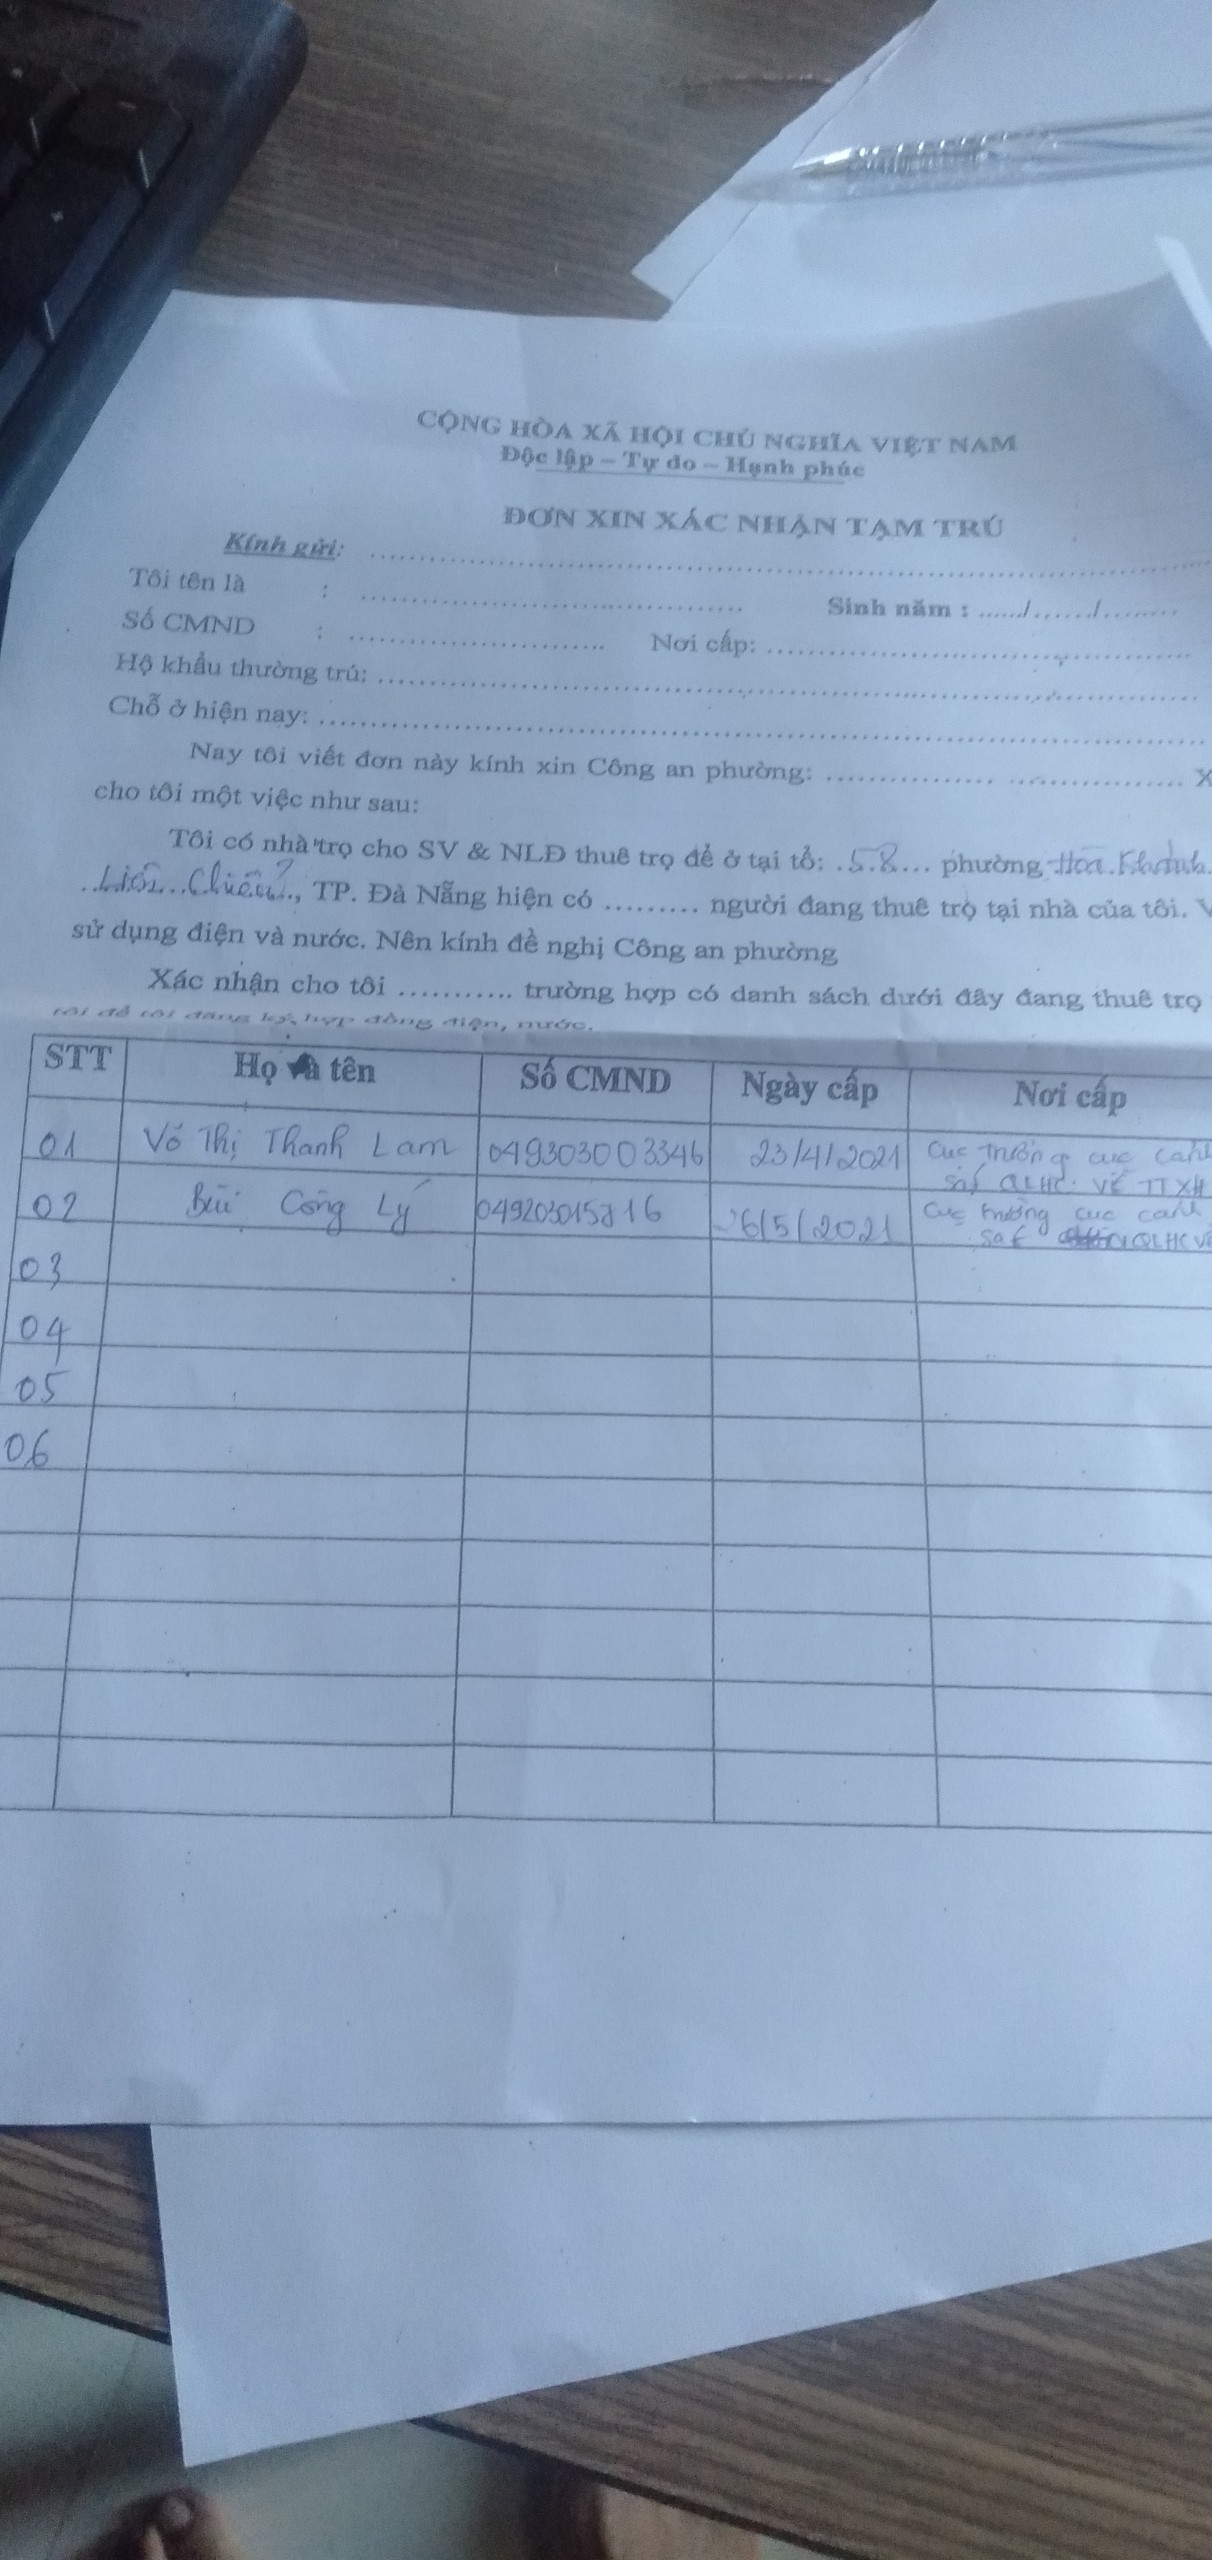 CỘNG HÒA XÃ HỘI CHỦ NGHĨA VIỆT NAM
Độc lập – Tự do – Hạnh phúc
ĐƠN XIN XÁC NHẬN TẠM TRÚ
Kính gửi: ........................................
Tôi tên là : ........................................ Sinh năm : ....../......./.........
Số CMND : .............................. Nơi cấp: ........................................
Hộ khẩu thường trú: ........................................
Chỗ ở hiện nay: ........................................
Nay tôi viết đơn này kính xin Công an phường: ........................................ X
cho tôi một việc như sau:
Tôi có nhà trọ cho SV & NLĐ thuê trọ để ở tại tổ: .58... phường Hòa.Khánh.
..Liên..Chiểu.., TP. Đà Nẵng hiện có ......... người đang thuê trọ tại nhà của tôi. V
sử dụng điện và nước. Nên kính đề nghị Công an phường
Xác nhận cho tôi ........... trường hợp có danh sách dưới đây đang thuê trọ
tôi để tôi đăng ký hợp đồng điện, nước.
STT Họ và tên Số CMND Ngày cấp Nơi cấp
01 Võ Thị Thanh Lam 049303003346 23/4/2021 Cục trưởng cục cảnh
sát QLHC VỀ TTXH
02 Bùi Công Lý 049203015816 26/5/2021 Cục trưởng cục cảnh
sát QLHC về
03
04
05
06